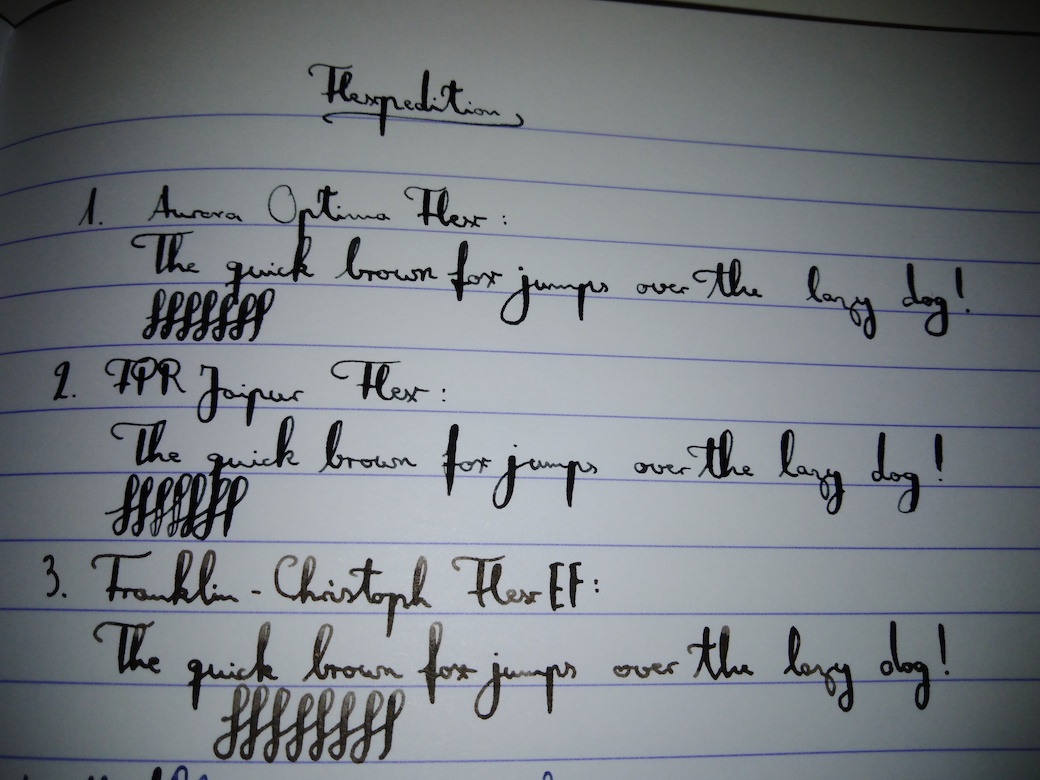 Flexpedition
1. Aurora Optima Flex:
The quick brown fox jumps over the lazy dog!
2. FPR Jaipur Flex:
The quick brown fox jumps over the lazy dog!
3. Franklin-Christoph Flex EF:
The quick brown fox jumps over the lazy dog!